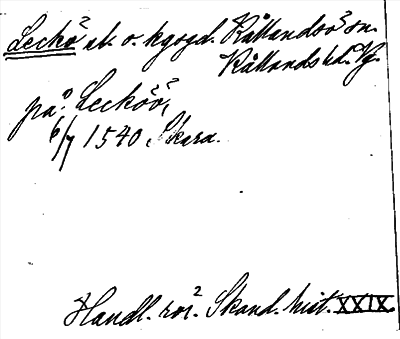 Leckö sl. o. kgsgd. Kållandsö sn.
Kållands hd. Vg.
på Lecköö,
6/7 1540 Skara.
Handl. rör. Skand. hist. XXIX